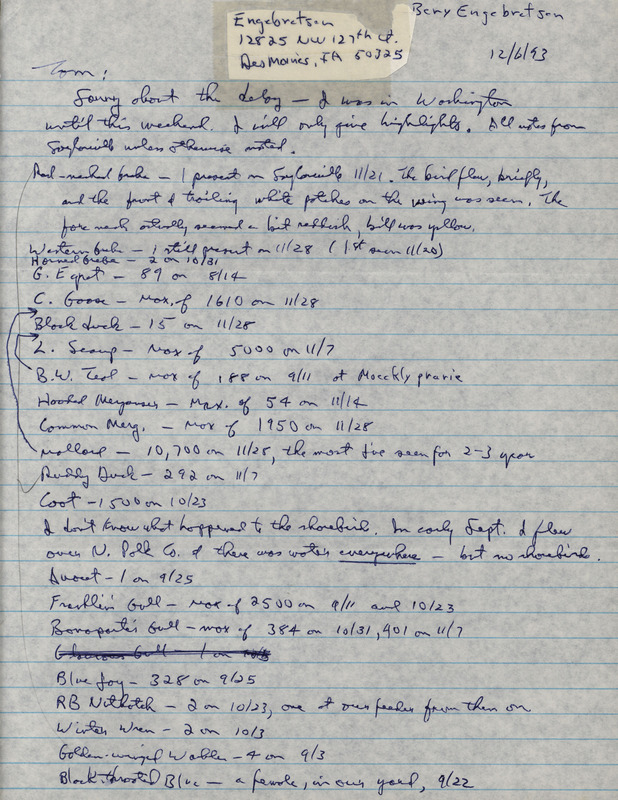 Engebretsen
12825 NW 127th Ct.
Des Moines, IA 50325
Bery Engebretsen
12/6/93
Tom:
Sorry about the delay – I was in Washington
until this weekend. I will only give highlights. All notes from
Saylorville unless otherwise noted.
Red-necked Grebe – 1 present on Saylorville 11/21. The bird flew, briefly,
and the front & trailing white patches on the wing was seen. The
fore neck actually seemed a bit reddish, bill was yellow.
Western Grebe – 1 still present on 11/28 (1st seen 11/20)
Horned Grebe – 2 on 10/31
G. Egret – 89 on 8/14
C. Goose – Max. of 1610 on 11/28
Black Duck – 15 on 11/28
L. Scaup – Max of 5000 on 11/7
B.W. Teal – max of 188 on 9/11 at Moeckly prarie
Hooded Merganser – Max. of 54 on 11/14
Common Merg. – max of 1950 on 11/28
Mallard – 10,700 on 11/28, the most I've seen for 2-3 year
Ruddy Duck – 292 on 11/7
Coot – 1500 on 10/23
I don't know what happened to the shorebirds. In early Sept. I flew
over N. Polk Co. & there was water everywhere – but no shorebirds.
Avocet – 1 on 9/25
Franklin's Gull – max of 2500 on 9/11 and 10/23
Bonaparte's Gull – max of 384 on 10/31, 401 on 11/7
Glaucous Gull – 1 on
Blue Jay – 328 on 9/25
RB Nuthatch – 2 on 10/23, one at our feeder from then on
Winter Wren – 2 on 10/3
Golden-winged Warbler – 4 on 9/3
Black-throated Blue – a female, in our yard, 9/22